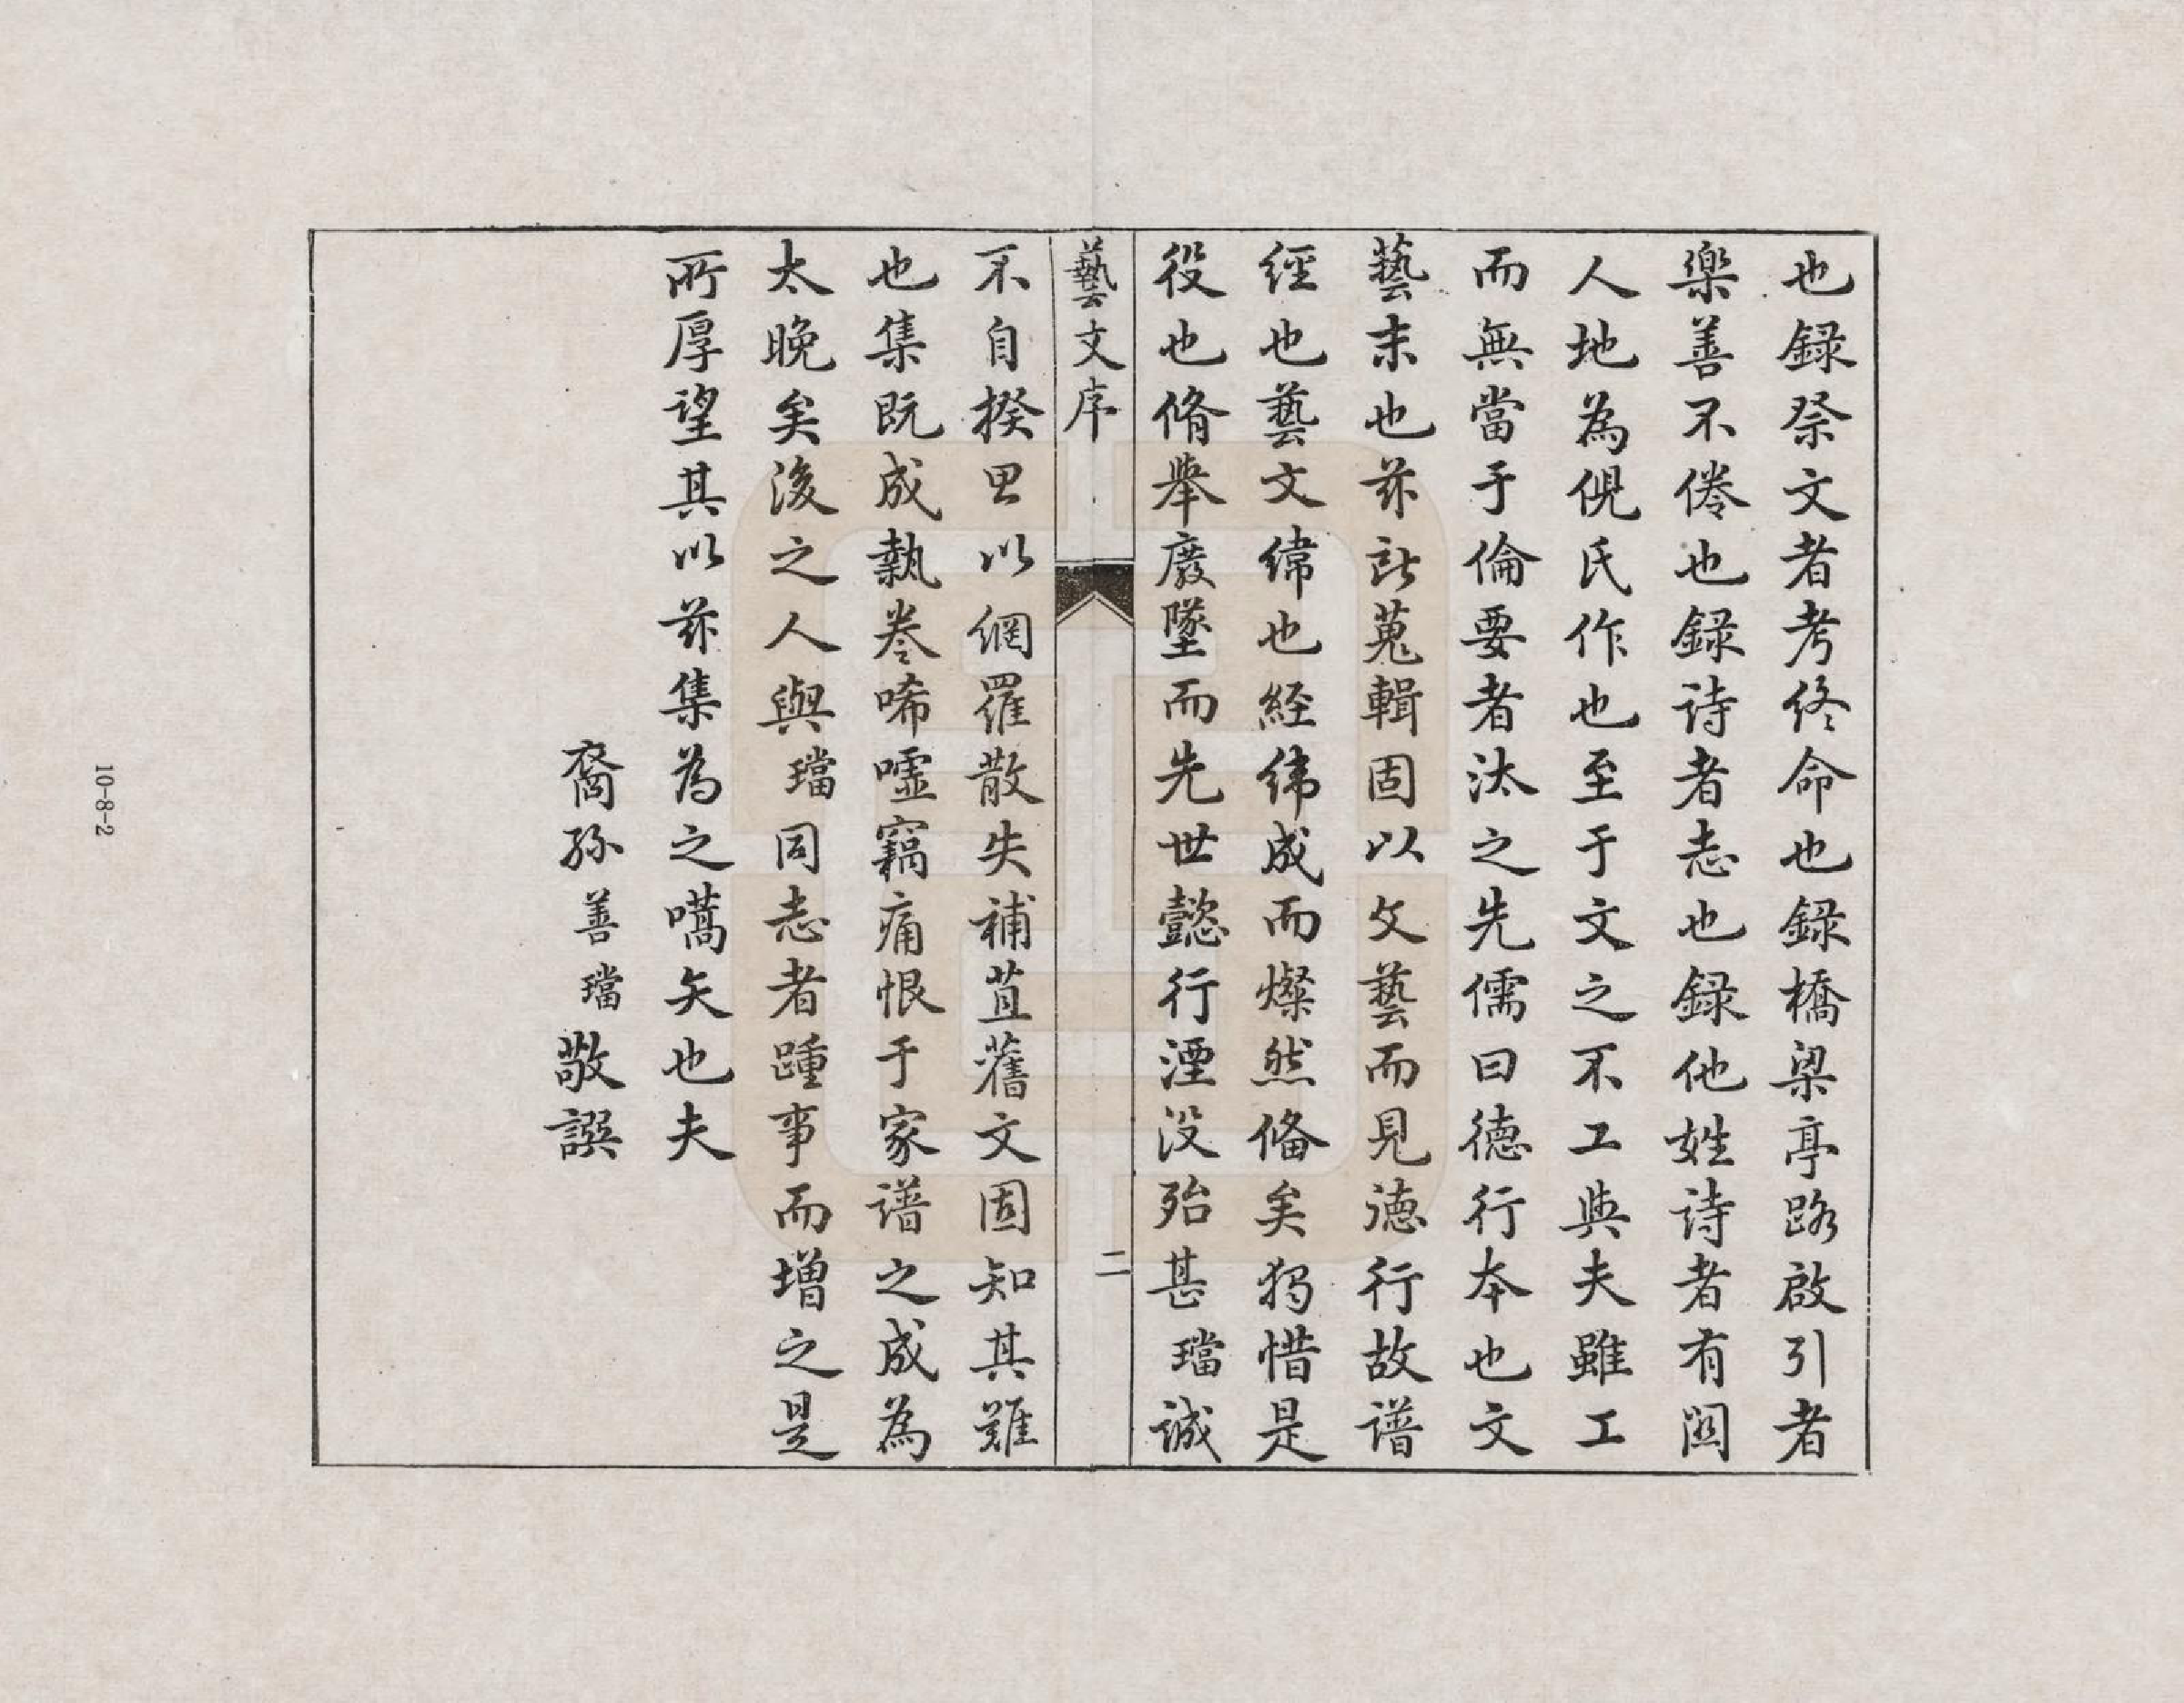 也録祭文者考終命也録橋梁亭路啟引者
樂善不倦也録詩者志也録他姓詩者有関
人地為倪氏作也至于文之不工與夫雖工
而無當于倫要者汰之先儒曰德行本也文
藝末也茲所蒐輯固以文藝而見德行故譜
經也藝文緯也經緯成而燦然俻矣獨惜是
役也脩舉廢墜而先世懿行湮沒殆甚璫誠
藝文序
二
不自揆思以網羅散失補苴舊文固知其難
也集既成執卷唏噓竊痛恨于家譜之成為
太晚矣後之人與璫同志者踵事而增之是
所厚望其以茲集為之嚆矢也夫
裔孫善璫敬譔
10-8-2